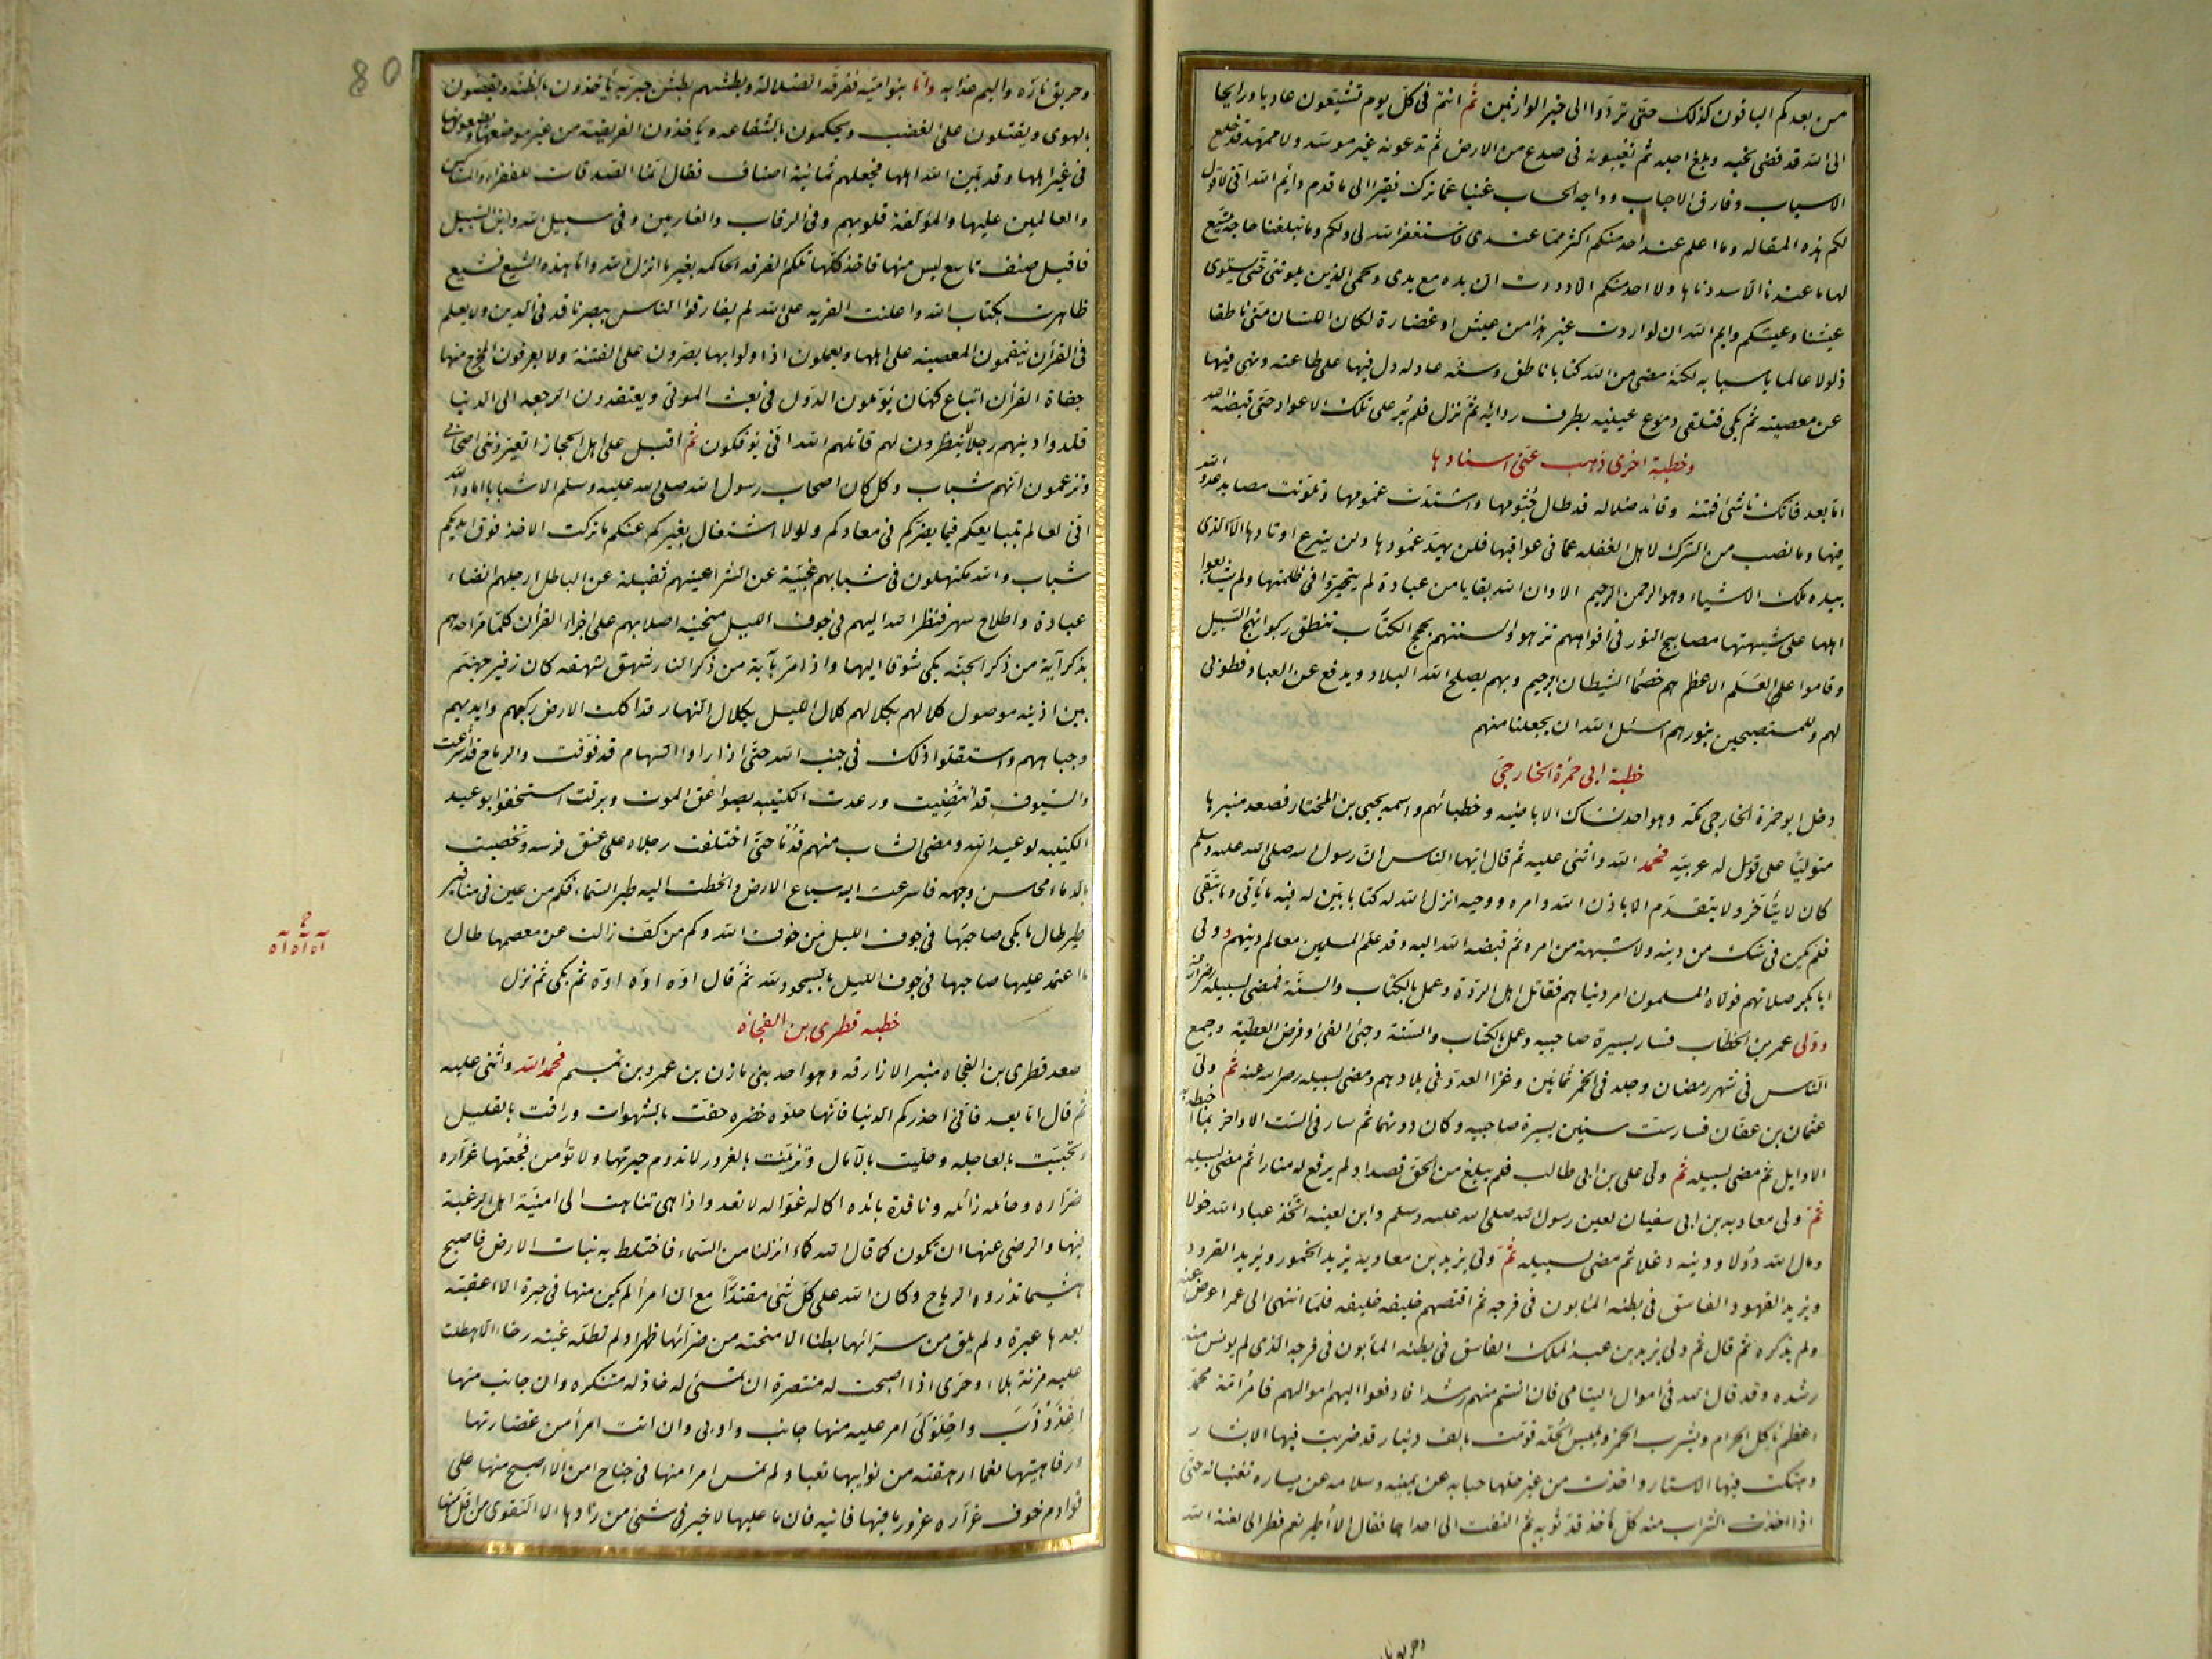 من بعدكم الباقون كذلك حتى تردوا الى خير الوارثين ثم انتم فى كل يوم تشيعون غاديا ورايحا
الى الله قد قضى نحبه وبلغ اجله ثم تغيبونه فى صدع من الارض ثم تدعونه غير موسد ولا ممهد قد خلع
الاسباب وفارق الاحباب وواجه الحساب غنيا عما ترك فقيرا الى ما قدم وايم الله انى لاقول
لكم هذه المقاله وما اعلم عند احد منكم اكثر مما عندى فاستغفر الله لى ولكم وما تبلغنا حاجة يتسع
لها ما عندنا الا سددناها ولا احد منكم الا وددت ان يده مع يدى ولحمى الذين يلوننى حتى يستوى
عيشنا وعيشكم وايم الله ان لو اردت غير هذا من عيش او غضارة لكان اللسان منى ناطقا
ذلولا عالما باسبابه لكنه مضى من الله كتابا ناطق وسنه عادله دل فيها على طاعته ونهى فيها
عن معصيته ثم بكى فتلقى دموع عينيه بطرف ردائه ثم نزل فلم ير على تلك الاعواد حتى قبضه الله
وخطبة اخرى ذهب عنى اسنادها
اما بعد فانك ناشئ فتنه وقائد ضلاله قد طال جثومها واشتدت غمومها وتلونت مصايد عدو الله
فيها وما نصب من الشرك لاهل الغفله عما فى عواقبها فلن يهد عمودها ولن ينزع اوتادها الا الذى
بيده ملك الاشياء وهو الرحمن الرحيم الا وان لله بقايا من عبادة لم يتحيروا فى ظلمتها ولم يشايعوا
اهلها على شبهتها مصابيح النور فى افواههم تزهو والسنتهم بحجج الكتاب تنطق ركبوا نهج السبيل
وقاموا على العلم الاعظم هم خصما الشيطان الرجيم وبهم يصلح الله البلاد ويدفع عن العباد فطوبى
لهم وللمستصبحين بنورهم اسئل الله ان يجعلنا منهم
خطبة ابى حمزة الخارجى
دخل ابو حمزة الخارجى مكة وهو احد نساك الاباضيه وخطبائهم واسمه يحيى بن المختار فصعد منبرها
متوكئا على قوس له عربيه فحمد الله واثنى عليه ثم قال ايها الناس ان رسول الله صلى الله عليه وسلم
كان لا يتأخر ولا يتقدم الا باذن الله وامره ووحيه انزل الله له كتابا بين له فيه ما يأتى وما يتقى
فلم يكن فى شك من دينه ولا شبهة من امره ثم قبضه الله اليه وقد علم المسلمين معالم دينهم وولى
ابا بكر صلاتهم فولاه المسلمون امر دنياهم فقاتل اهل الردة وعمل بالكتاب والسنة فمضى لسبيله رضى الله عنه
وولى عمر بن الخطاب فسار بسيرة صاحبيه وعمل بالكتاب والسنة وجبى الفئ وفرض العطية وجمع
الناس فى شهر رمضان وجلد فى الخمر ثمانين وغزا العدو فى بلادهم ومضى لسبيله رضى الله عنه ثم ولى
عثمان بن عفان فسار ست سنين بسيرة صاحبيه وكان دونهما ثم سار فى الست الاواخر بما احبط به
الاوايل ثم مضى لسبيله ثم ولى على بن ابى طالب فلم يبلغ من الحق قصدا ولم يرفع له منارا ثم مضى لسبيله
ثم ولى معاويه بن ابى سفيان لعين رسول الله صلى الله عليه وسلم وابن لعينه اتخذ عباد الله خولا
ومال الله دولا ودينه دغلا ثم مضى لسبيله ثم ولى يزيد بن معاويه يزيد الخمور ويزيد القرود
ويزيد الفهود الفاسق فى بطنه المابون فى فرجه ثم اقتصهم خليفه خليفه فلما انتهى الى عمر اعرض عنه
ولم يذكره ثم قال ثم ولى يزيد بن عبد الملك الفاسق فى بطنه المأبون فى فرجه الذى لم يونس منه
رشده وقد قال الله فى اموال اليتامى فان انستم منهم رشدا فادفعوا اليهم اموالهم فامر امة محمد
اعظم ياكل الحرام ويشرب الخمر ويلبس الحلة قومت بالف دينار قد ضربت فيها الابشار
وهتكت فيها الاستار واخذت من غير حلها حبابه عن يمينه وسلامه عن يساره تغنيانه حتى
اذا اخذت الشراب منه كل ماخذ قد ثوبه ثم التفت الى احداهما فقال الا أطير نعم فطر الى لعنة الله
80
وحريق ناره واليم عذابه واما بنو اميه ففرقه الضلالة وبطشهم بطش جبريه يأخذون بالظنه ويقضون
بالهوى ويقتلون على الغضب ويحكمون بالشفاعه وياخذون الفريضة من غير موضعها ويضعونها
فى غير اهلها وقد بين الله اهلها فجعلهم ثمانية اصناف فقال انما الصدقات للفقراء والمساكين
والعاملين عليها والمؤلفة قلوبهم وفى الرقاب والغارمين وفى سبيل الله وابن السبيل
فاقبل صنف تاسع ليس منها فاخذ كلها تلكم الفرقه الحاكمه بغير ما انزل الله واما هذه الشيع فشيع
ظاهرت بكتاب الله واعلنت الفريه على الله لم يفارقوا الناس ببصر نافد فى الدين ولا بعلم
فى القرأن ينقمون المعصيه على اهلها ويعملون اذا ولوا بها يصرون على الفتنة ولا يعرفون المخرج منها
جفاة القرأن اتباع كهان يؤملون الدول فى بعث الموتى ويعتقدون الرجعه الى الدنيا
قلدوا دينهم رجلا لا ينظرون لهم قاتلهم الله انى يؤفكون ثم اقبل على اهل الحجاز اتعيروننى باصحابى
وتزعمون انهم شباب وكل كان اصحاب رسول الله صلى الله عليه وسلم الا شبابا اما والله
انى لعالم بتبايعكم فيما يضركم فى معادكم ولولا اشتغال بغيركم عنكم ما تركت الاخذ فوق ايديكم
شباب والله مكتهلون فى شبابهم غبية عن الشر اعينهم ثقيلة عن الباطل ارجلهم انضاء
عبادة واطلاح سهر فنظر الله اليهم فى جوف الليل منحنيه اصلابهم على اجزاء القرأن كلما قرا احدهم
بذكر آية من ذكر الجنة بكى شوقا اليها واذا مر بآية من ذكر النار شهق شهقه كان زفير جهنم
بين اذنيه موصول كلالهم بكلالهم كلال الليل بكلال النهار قد اكلت الارض ركبهم وايديهم
وجباههم واستقلوا ذلك فى جنب الله حتى اذا راوا السهام قد فوقت والرماح قد اشرعت
والسيوف قد انتضيت ورعدت الكتيبه بصواعق الموت وبرقت استخفوا بوعيد
الكتيبه لوعيد الله ومضى الشاب منهم قدما حتى اختلفت رجلاه على عنق فرسه وتخضبت
بالدماء محاسن وجهه فاسرعت اليه سباع الارض وانحطت اليه طير السماء فكم من عين فى مناقير
طير طال ما بكى صاحبها فى جوف الليل من خوف الله وكم من كف زالت عن معصمها طال
ما اعتمد عليها صاحبها فى جوف الليل بالسجود لله ثم قال اوه اوه اوه ثم بكى ثم نزل
خطبه قطرى بن الفجاه
صعد قطرى بن الفجاه منبر الازارقه وهو احد بنى مازن بن عمرو بن تميم فحمد الله واثنى عليه
ثم قال اما بعد فانى احذركم الدنيا فانها حلوه خضره حفت بالشهوات وراقت بالقليل
وتحببت بالعاجله وحليت بالآمال وتزينت بالغرور لا تدوم حبرتها ولا تؤمن فجعتها غراره
ضراره وحائله زائله ونافدة بائده اكاله غواله لا تعد واذا هى تناهت الى امنية اهل الرغبة
فيها والرضى عنها ان تكون كما قال الله كماء انزلنا من السماء فاختلط به نبات الارض فاصبح
هشيما تذروه الرياح وكان الله على كل شئ مقتدرا مع ان امرأ لم يكن منها فى حبرة الا اعقبته
بعدها عبرة ولم يلق من سرائها بطنا الا منحته من ضرائها ظهرا ولم تطله غبية رخاء الا هطلت
عليه مزنة بلاء وحرى اذا اصبحت له منتصرة ان تمسئ له خاذله متنكره وان جانب منها
اعذوذب واحلولى امر عليه منها جانب واوبى وان اتت امرأ من غضارتها
ورفاهيتها نعما ارهقته من نوايبها تعبا ولم يمس امرا منها فى جناح امن الا اصبح منها على
قوادم خوف غراره غرور ما فيها فانيه فان ما عليها لا خير فى شئ من زادها الا التقوى من اقل منها
اه اه اه